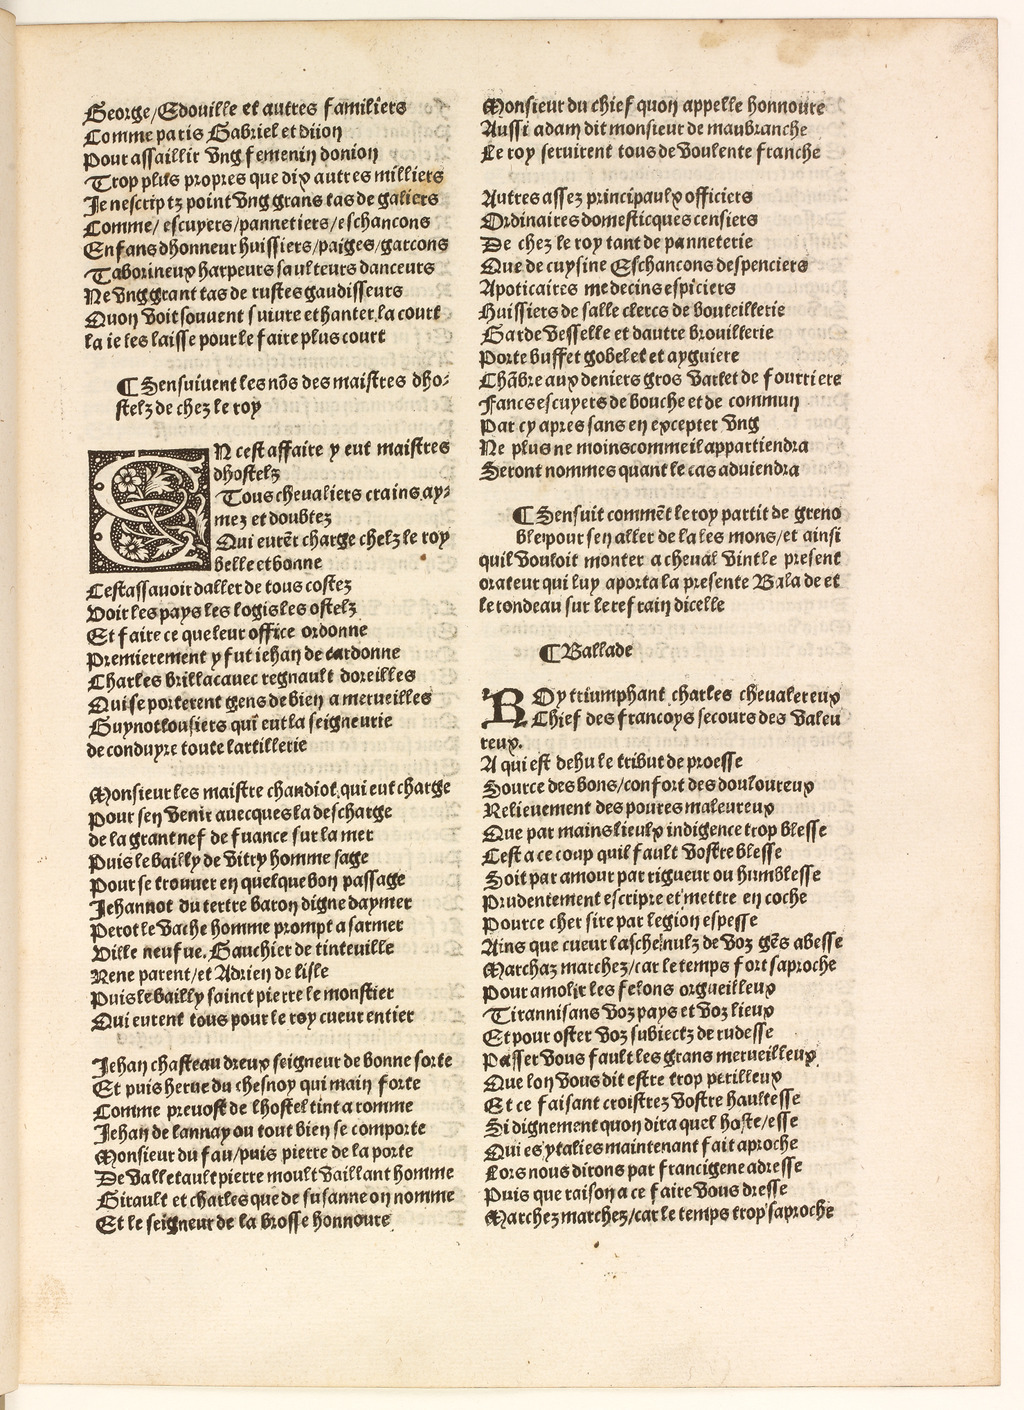 George/Edouille et autres familiers
Comme paris Gabriel et dijon
Pour assaillir vng femenin donion
Trop plus propres que dix autres milliers
Je nescriptz point vng grans tas de galiers
Comme/ escuyers/pannetiers/eschancons
Enfans dhonneur huissiers/paiges/garcons
Taborineux harpeurs saulteurs danceurs
Ne vng grant tas de rustes gaudisseurs
Quon voit souuent suiure et hanter la court
la ie les laisse pour le faire plus court
¶ Sensuiuent les nõs des maistres dho⸗
stelz de chez le roy
EN cest affaire y eut maistres
dhostelz
Tous cheualiers crains, ay⸗
mez et doubtez
Qui eurẽt charge chelz le roy
belle et bonne
Cestassauoir daller de tous costez
Voir les pays les logis les ostelz
Et faire ce que leur office ordonne
Premierement y fut iehan de cardonne
Charles brillacauec regnault doreilles
Qui se porterent gens de bien a merueilles
Guynot lousiers qui eut la seigneurie
de conduyre toute lartillerie
Monsieur les maistre chandiot qui eut charge
Pour sen venir auecques la descharge
de la grant nef de fuance sur la mer
Puis le bailly de vitry homme sage
Pour se trouuer en quelque bon passage
Jehannot du tertre baron digne daymer
Perot le vache homme prompt a sarmer
Ville neufue. Gauchier de tinteuille
Rene parent/et Adrien de lisle
Puis le bailly sainct pierre le monstier
Qui eurent tous pour le roy cueur entier
Jehan chasteau dreux seigneur de bonne sorte
Et puis herue du chesnoy qui main forte
Comme preuost de lhostel tint a romme
Jehan de lannay ou tout bien se comporte
Monsieur du fau/puis pierre de la porte
De valletault pierre moult vaillant homme
Girault et charles que de susanne on nomme
Et le seigneur de la brosse honnoure
Monsieur du chief quon appelle honnoure
Aussi adam dit monsieur de maubranche
Le roy seruirent tous de voulente franche
Autres assez principaulx officiers
Ordinaires domesticques censiers
De chez le roy tant de panneterie
Que de cuysine Eschancons despenciers
Apoticaires medecins espiciers
Huissiers de salle clercs de bouteillerie
Garde vesselle et dautre brouillerie
Porte buffet gobelet et ayguiere
Chãbre aux deniers gros varlet de fourriere
Francs escuyers de bouche et de commun
Par cy apres sans en excepter vng
Ne plus ne moins comme il appartiendra
Seront nommes quant le cas aduiendra
¶ Sensuit commẽt le roy partit de greno
ble pour sen aller de la les mons/et ainsi
quil vouloit monter a cheual vint le present
orateur qui luy aporta la presente Balade et
le rondeau sur le refrain dicelle
¶ Ballade
ROy triumphant charles cheualereux
Chief des francoys secours des valeu
reux.
A qui est dehu le tribut de proesse
Source des bons/confort des douloureux
Relieuement des poures maleureux
Que par mains lieulx indigence trop blesse
Cest a ce coup quil fault vostre blesse
Soit par amour par rigueur ou humblesse
Prudentement escripre et mettre en coche
Pource cher sire par legion espesse
Ains que cueur lasche nulz de voz gẽs abesse
Marchaz marchez/car le temps fort saproche
Pour amolir les felons orgueilleux
Tirannisans voz pays et voz lieux
Et pour oster voz subiectz de rudesse
Passer vous fault les grans merueilleux
Que lon vous dit estre trop perilleux
Et ce faisant croistrez vostre haultesse
Si dignement quon dira quel hoste/esse
Qui es ytalies maintenant fait aproche
Lors nous dirons par francigene adresse
Puis que raison a ce faire vous dresse
Marchez marchez/car le temps trop saproche